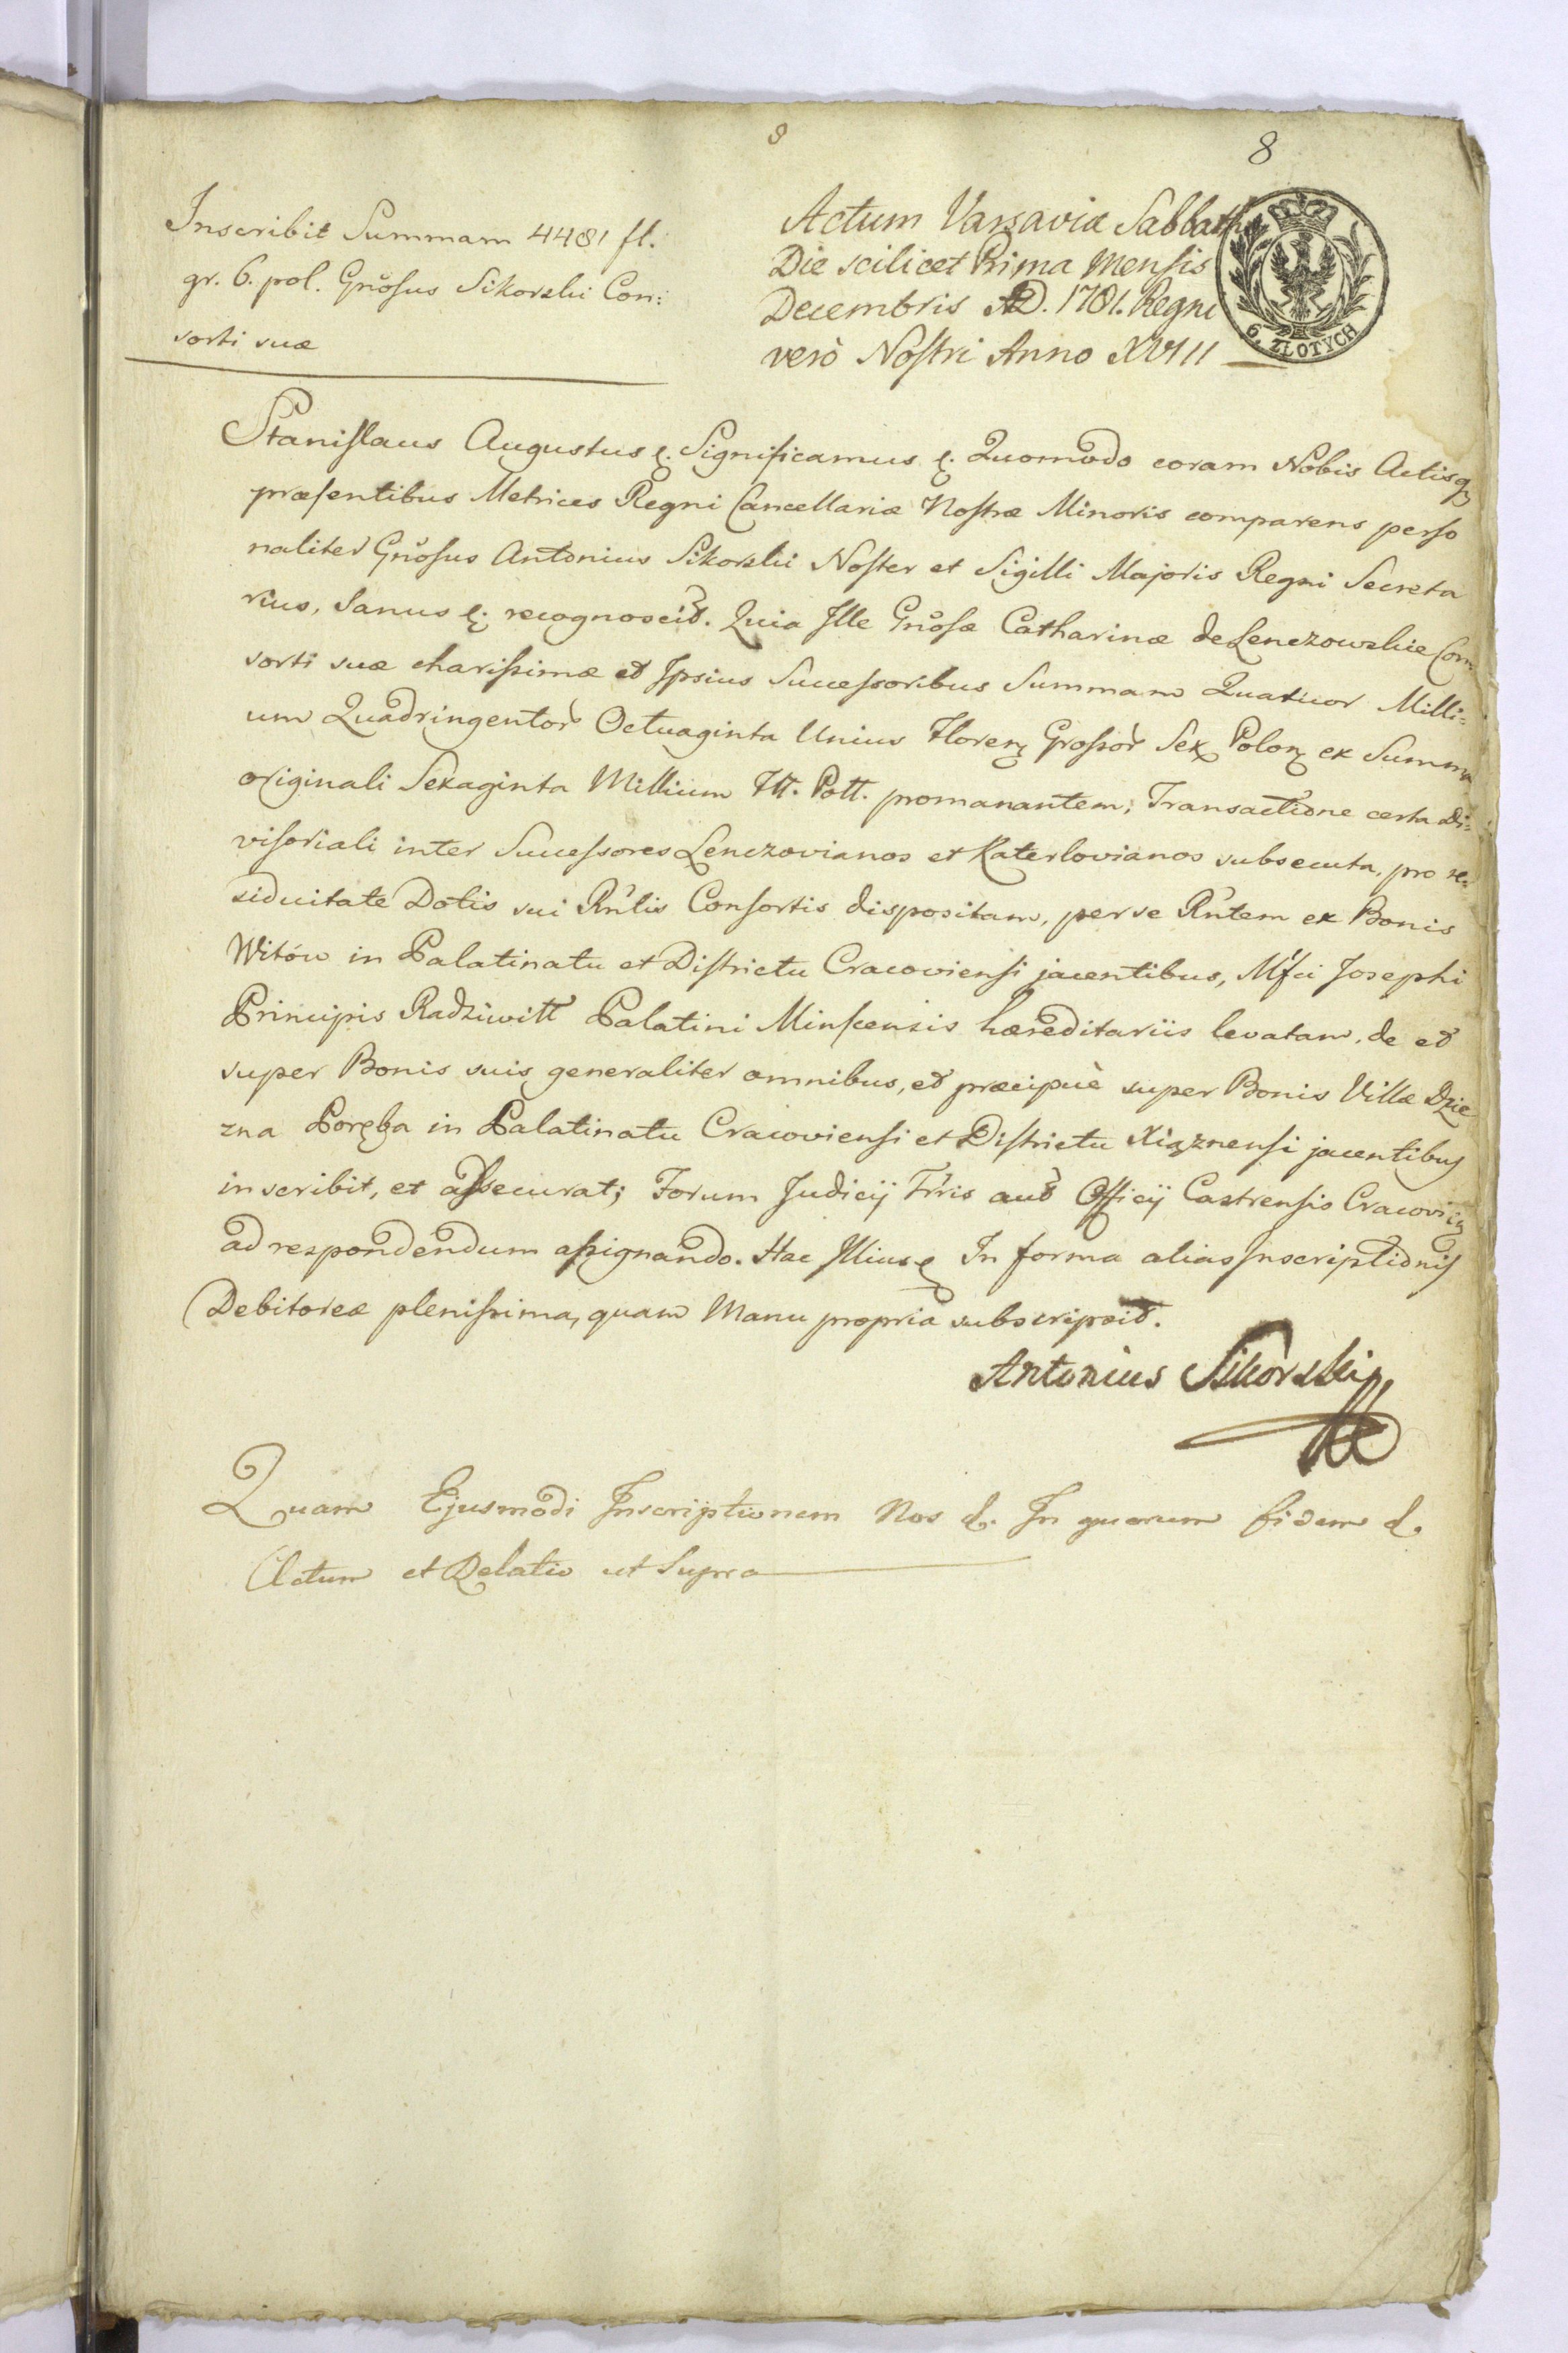 8
8
Inscribit Summam 4481 fl.
gr. 6. pol. Gnosus Sikorski Con:
sorti suæ
Actum Varsaviæ Sabbatho
Die scilicet Prima Mensis
Decembris AD. 1781. Regni
verò Nostri Anno XVIII
6. ZŁOTYCH
Stanislaus Augustus &. Significamus &. Quomodo coram Nobis Actisq
præsentibus Metrices Regni Cancellariæ Nostræ Minoris comparens perso
naliter Gnosus Antonius Sikorski Noster et Sigilli Majoris Regni Secreta
rius, Sanus &. recognoscit. Quia Ille Gnosæ Catharinæ de Lenczowskie Con
sorti suæ charissimæ et Ipsius Successoribus Summam Quatuor Milli=
um Quadringentor Octuaginta Unius Floren Grossor Sex Polon ex Summa
originali Sexaginta Millium Fll. Poll. promanantem; Transactione certa di=
visoriali inter Successores Lenczovianos et Katerlovianos subsecuta, pro re=
siduitate Dotis sui Rnlis Consortis dispositam, per se Rntem ex Bonis
Witów in Palatinatu et Districtu Cracoviensi jacentibus, Mfci Josephi
Principis Radziwiłł Palatini Minscensis hæreditariis levatam, de et
super Bonis suis generaliter omnibus, et præcipuè super Bonis Villæ Dzie
zna Poręba in Palatinatu Cracoviensi et Districtu Xiąznensi jacentibus
inscribit, et assecurat; Forum Judicij Trris aut Officij Castrensis Cracovien
ad respondendum assignando. Hac Illius & In forma alias Inscriptionis
Debitoreæ plenissima, quam Manu propria subscripsit.
Antonius Sikorski
Quam Ejusmodi Inscriptionem Nos &. In quorum fidem &.
Actum et Relatio ut Supra